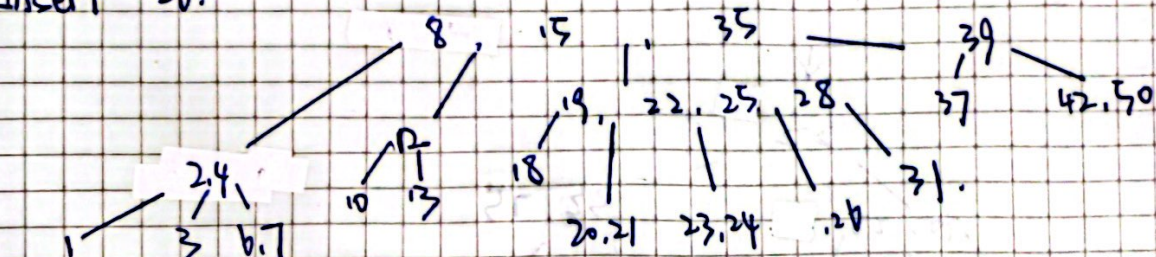 Insert
8, 15 35 39
19, 22, 25, 28 37 42,50
2,4 12 18 31.
1 3 6,7 10 13 20,21 23,24 ,26